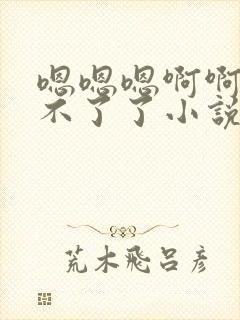 嗯嗯嗯啊啊
不了了小説
荒木飛呂彦